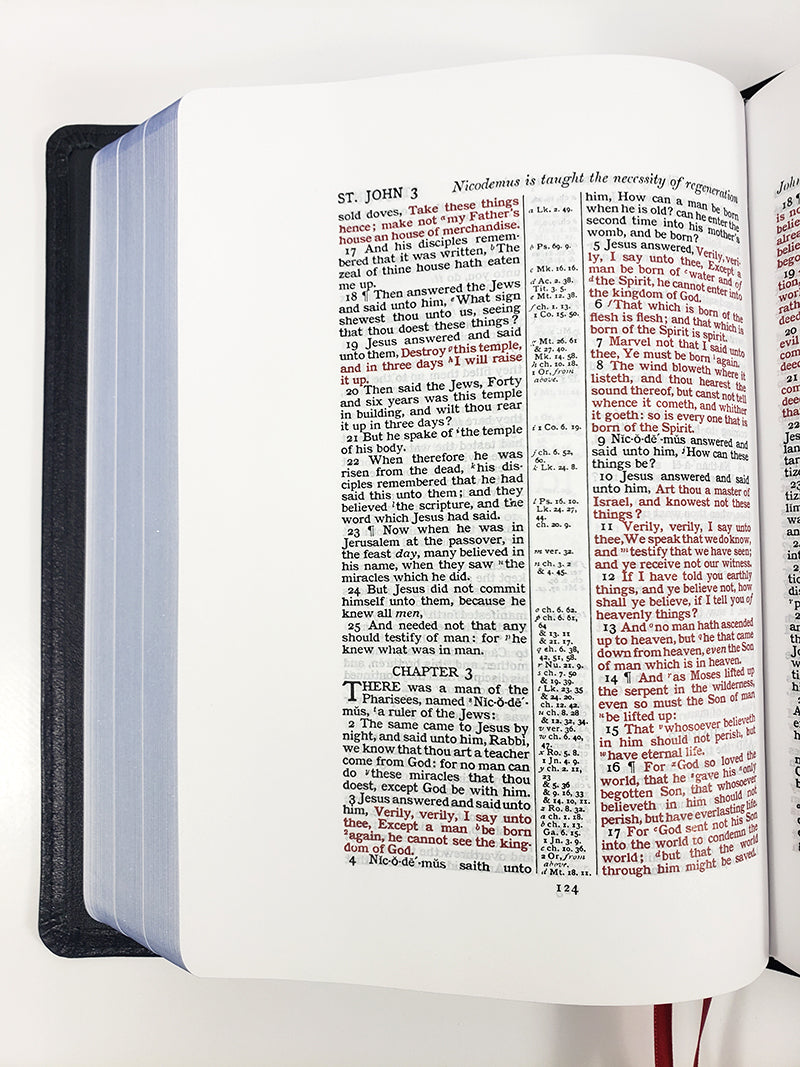 ST. JOHN 3
Nicodemus is taught the necessity of regeneration
sold doves, Take these things
hence; make not ᵃmy Father's
house an house of merchandise.
17 And his disciples remem-
bered that it was written, ᵇThe
zeal of thine house hath eaten
me up.
18 ¶ Then answered the Jews
and said unto him, ᵉWhat sign
shewest thou unto us, seeing
that thou doest these things?
19 Jesus answered and said
unto them, Destroy ᵍthis temple,
and in three days ʰI will raise
it up.
20 Then said the Jews, Forty
and six years was this temple
in building, and wilt thou rear
it up in three days?
21 But he spake of ⁱthe temple
of his body.
22 When therefore he was
risen from the dead, ᵏhis dis-
ciples remembered that he had
said this unto them; and they
believed ˡthe scripture, and the
word which Jesus had said.
23 ¶ Now when he was in
Jerusalem at the passover, in
the feast day, many believed in
his name, when they saw ⁿthe
miracles which he did.
24 But Jesus did not commit
himself unto them, because he
knew all men,
25 And needed not that any
should testify of man: for ᵖhe
knew what was in man.
CHAPTER 3
THERE was a man of the
Pharisees, named ˢNĭc-ŏ-dē´-
mŭs, ᵗa ruler of the Jews:
2 The same came to Jesus by
night, and said unto him, Rabbi,
we know that thou art a teacher
come from God: for no man can
do ᵛthese miracles that thou
doest, except God be with him.
3 Jesus answered and said unto
him, Verily, verily, I say unto
thee, Except a man ᵇbe born
²again, he cannot see the king-
dom of God.
4 Nĭc-ŏ-dē´-mŭs saith unto
a Lk. 2. 49.
b Ps. 69. 9.
c Mk. 16. 16.
d Ac. 2. 38.
Tit. 3. 5.
e Mt. 12. 38.
f ch. 1. 13.
1 Co. 15. 50.
g Mt. 26. 61
& 27. 40.
Mk. 14. 58.
h ch. 10. 18.
1 Or, from
above.
i 1 Co. 6. 19.
j ch. 6. 52,
60.
k Lk. 24. 8.
l Ps. 16. 10.
Lk. 24. 27,
44.
ch. 20. 9.
m ver. 32.
n ch. 3. 2
& 4. 45.
o ch. 6. 62.
p ch. 6. 61,
64
& 13. 11
& 21. 17.
q ch. 6. 38,
42, 51, 58.
r Nu. 21. 9.
s ch. 7. 50
& 19. 39.
t Lk. 23. 35
& 24. 20.
ch. 12. 42.
u ch. 8. 28
& 12. 32, 34.
v ver. 36.
w ch. 6. 40,
47.
x Ro. 5. 8.
1 Jn. 4. 9.
y ch. 2. 11,
23
& 5. 36
& 9. 16, 33
& 14. 10, 11.
z Ro. 8. 32.
a ch. 1. 18.
b ch. 1. 13.
Ga. 6. 15.
1 Jn. 3. 9.
c ch. 10. 36.
2 Or, from
above.
d Mt. 18. 11.
him, How can a man be born
when he is old? can he enter the
second time into his mother's
womb, and be born?
5 Jesus answered, Verily, veri-
ly, I say unto thee, Except a
man be born of ᶜwater and of
ᵈthe Spirit, he cannot enter into
the kingdom of God.
6 ᶠThat which is born of the
flesh is flesh; and that which is
born of the Spirit is spirit.
7 Marvel not that I said unto
thee, Ye must be born ¹again.
8 The wind bloweth where it
listeth, and thou hearest the
sound thereof, but canst not tell
whence it cometh, and whither
it goeth: so is every one that is
born of the Spirit.
9 Nĭc-ŏ-dē´-mŭs answered and
said unto him, ʲHow can these
things be?
10 Jesus answered and said
unto him, Art thou a master of
Israel, and knowest not these
things?
11 Verily, verily, I say unto
thee, We speak that we do know,
and ᵐtestify that we have seen;
and ye receive not our witness.
12 If I have told you earthly
things, and ye believe not, how
shall ye believe, if I tell you of
heavenly things?
13 And ᵒno man hath ascended
up to heaven, but ᵠhe that came
down from heaven, even the Son
of man which is in heaven.
14 ¶ And ʳas Moses lifted up
the serpent in the wilderness,
even so must the Son of man
ᵘbe lifted up:
15 That ᵛwhosoever believeth
in him should not perish, but
ʷhave eternal life.
16 ¶ For ˣGod so loved the
world, that he ᶻgave his ᵃonly
begotten Son, that whosoever
believeth in him should not
perish, but have everlasting life.
17 For ᶜGod sent not his Son
into the world to condemn the
world; ᵈbut that the world
through him might be saved.
124